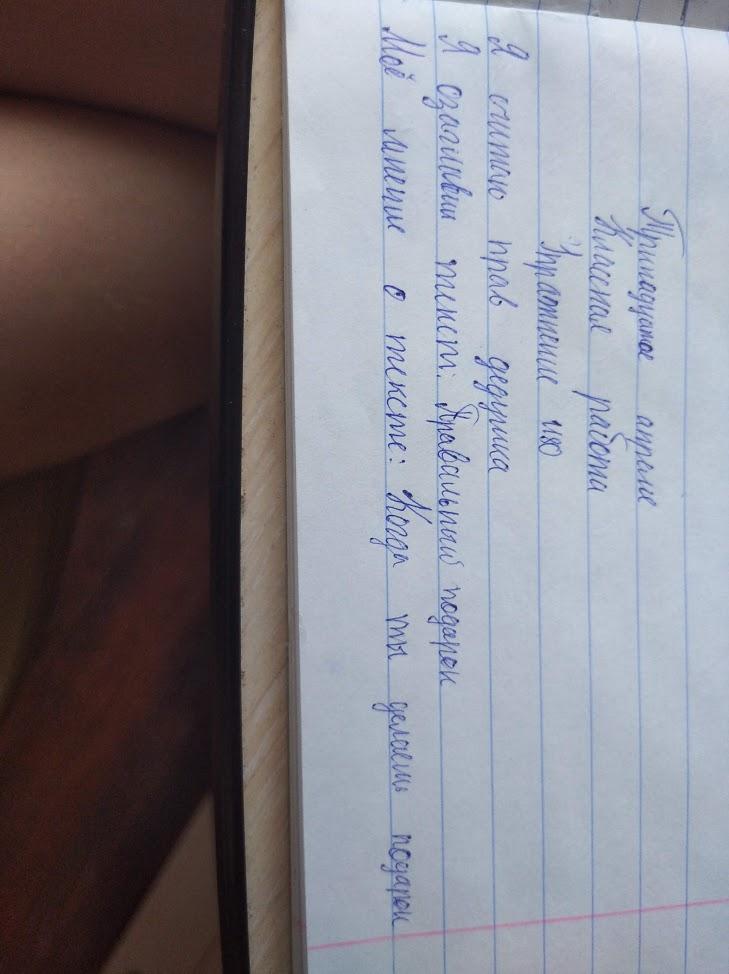 Тринадцатое апреля
Классная работа
Упражнение 480
Я считаю прав дедушка
Я озаглавил текст: Правальный подарок
Моё мнение о тексте: Когда ты делаешь подарок